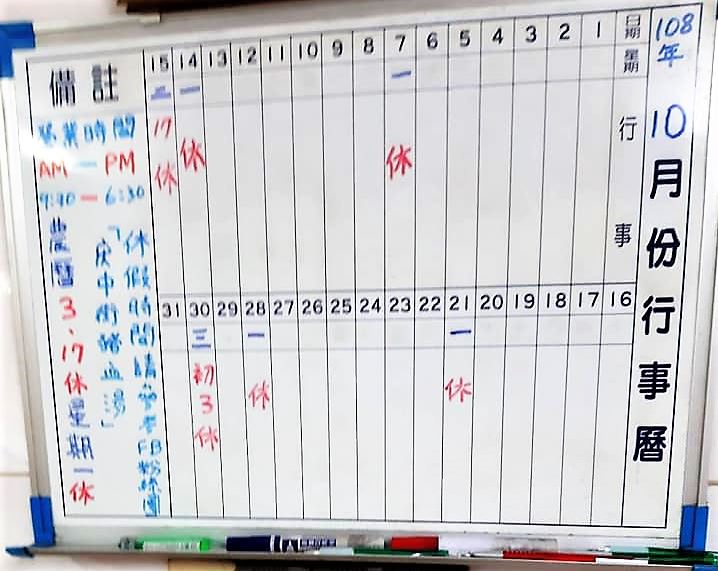 108年
10月份行事曆
日期 1 2 3 4 5 6 7 8 9 10 11 12 13 14 15
星期 一 一 二
行事
休
休
17休
16 17 18 19 20 21 22 23 24 25 26 27 28 29 30 31
一 一 三
休
休
初3休
備註
營業時間
AM — PM
9:30 — 6:30
休假時間請參考FB粉絲團
「庆中街豬血湯」
農曆3、17休星期一休